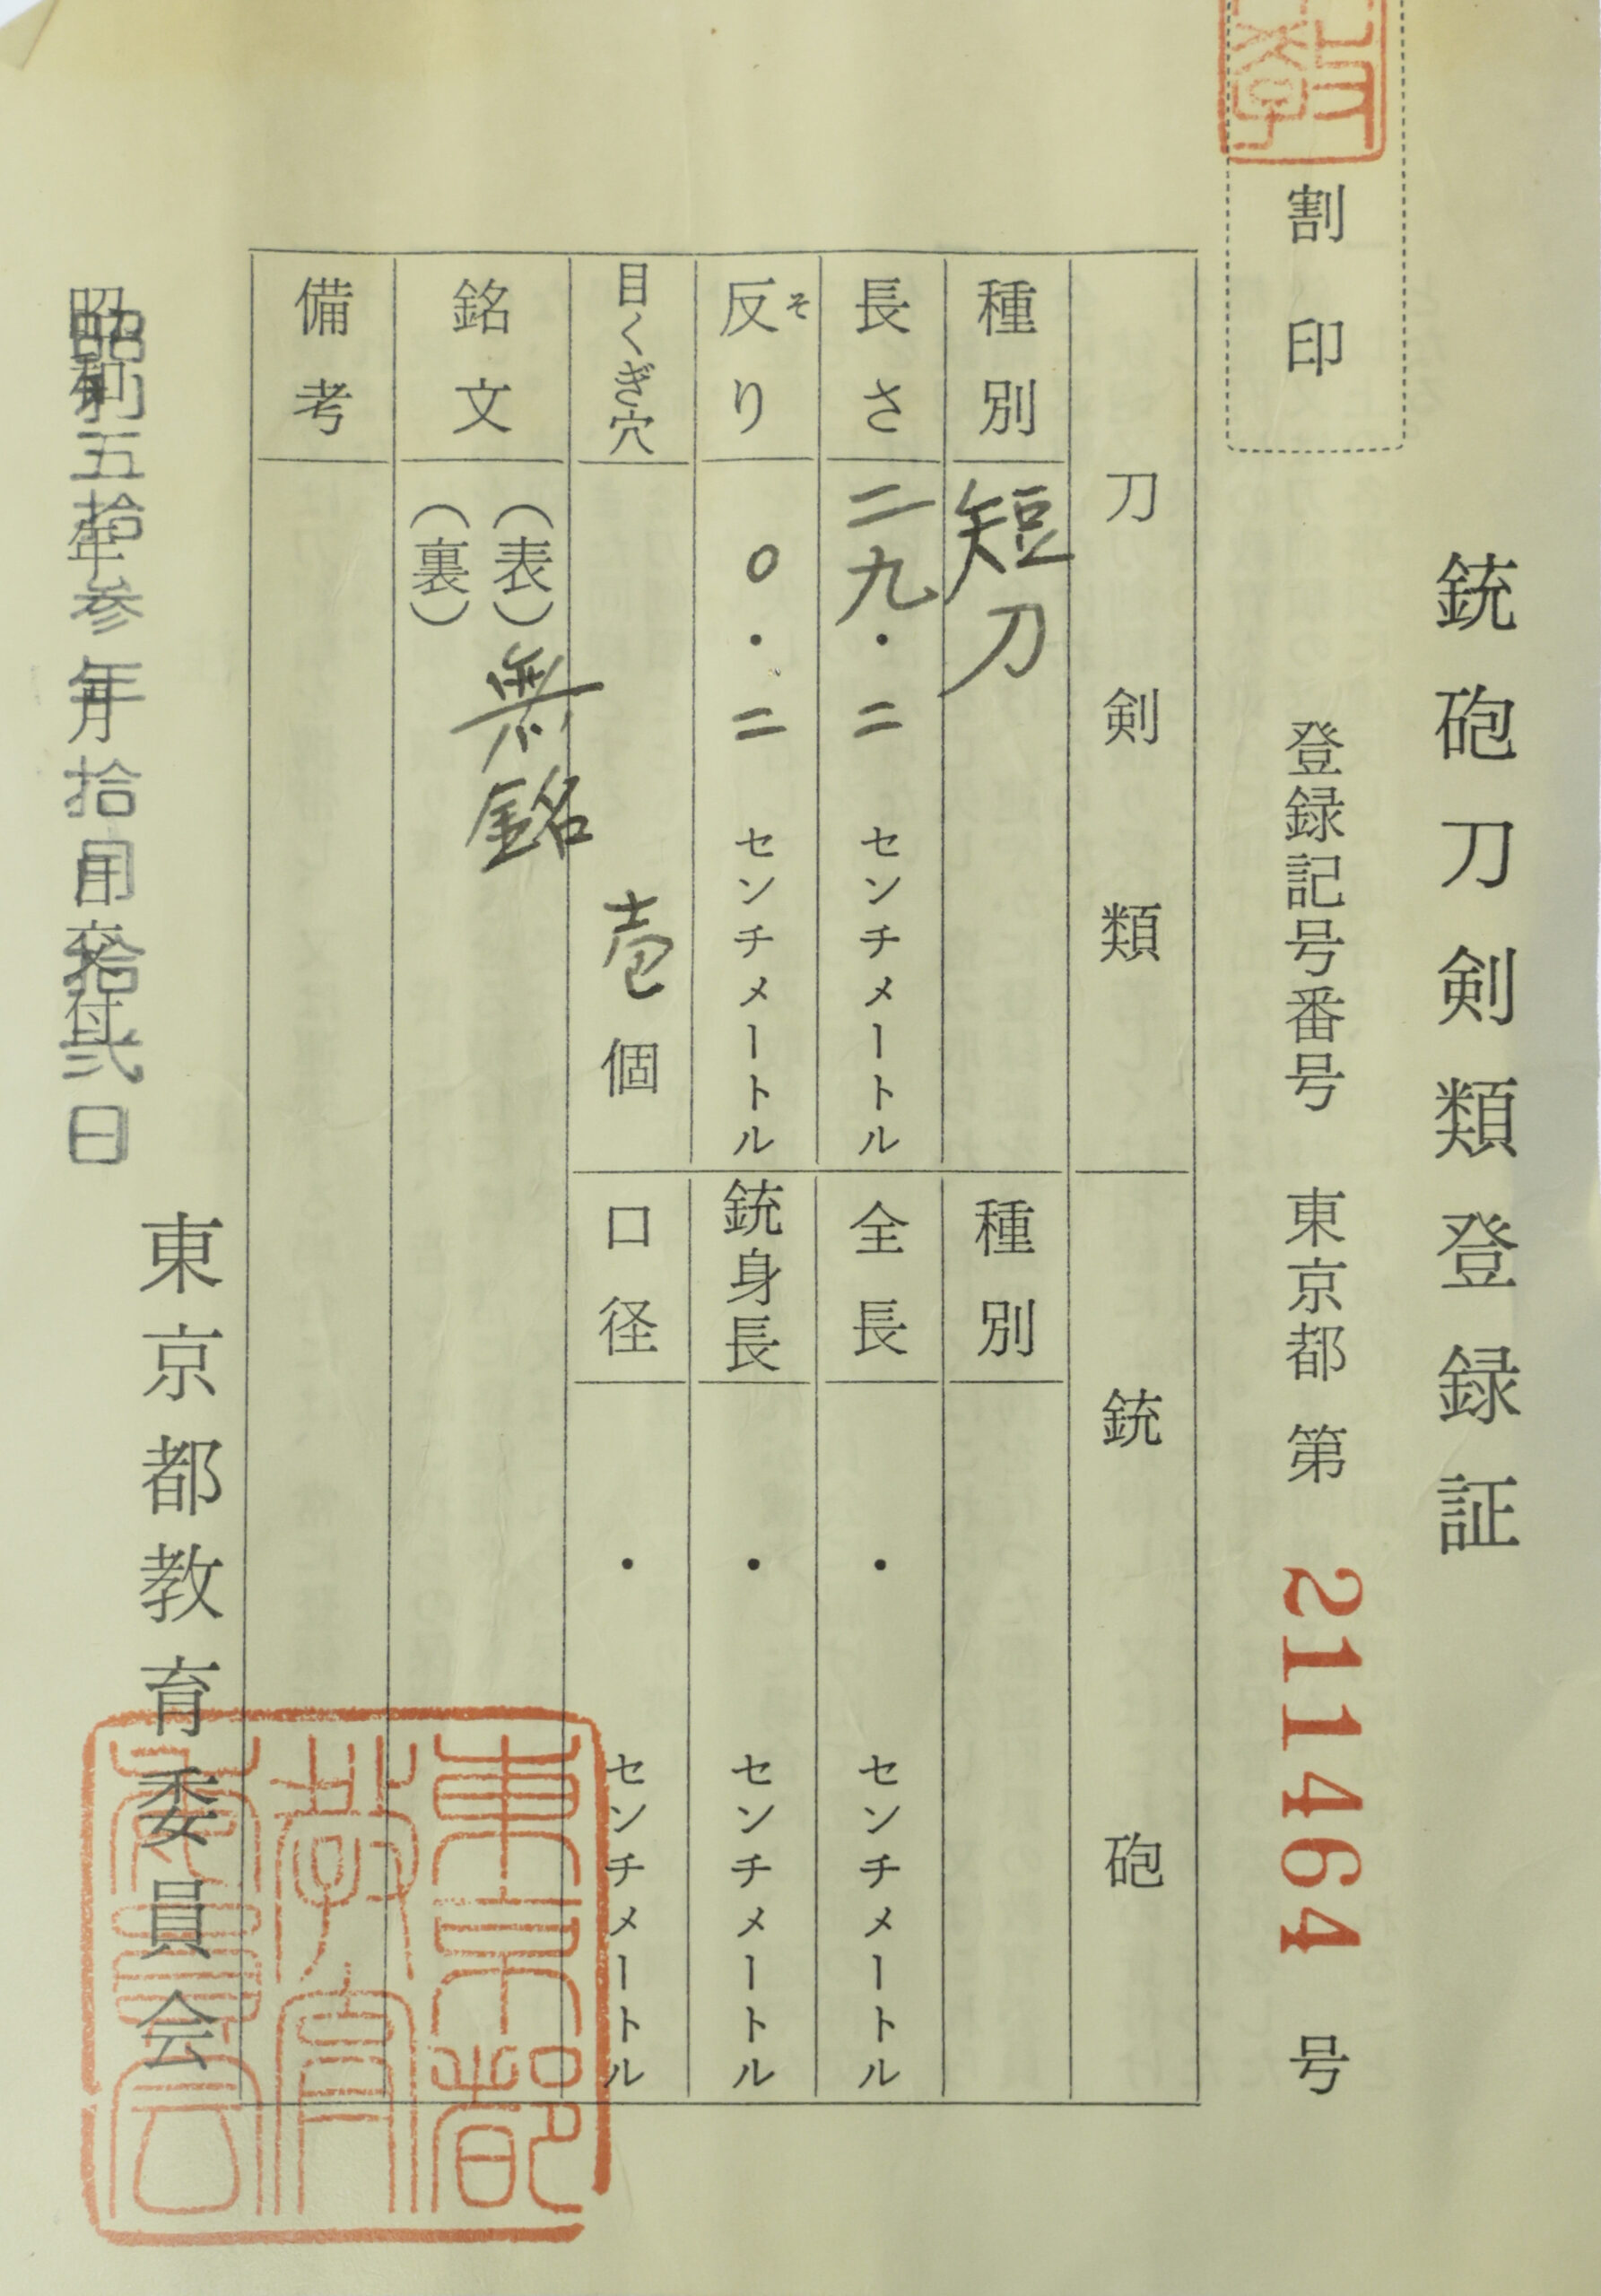 銃砲刀剣類登録証
割印
登録記号番号 東京都 第 211464 号
刀剣類
銃砲
種別 短刀
種別
長さ 二九・二 センチメートル
全長 ・ センチメートル
反り 〇・二 センチメートル
そ
銃身長 ・ センチメートル
目くぎ穴 壱個
口径 ・ センチメートル
銘文 (表) 無銘
(裏)
備考
昭和 年 月 日交付
昭和五拾参年拾月拾弐日
東京都教育委員会
東京都教育委員会